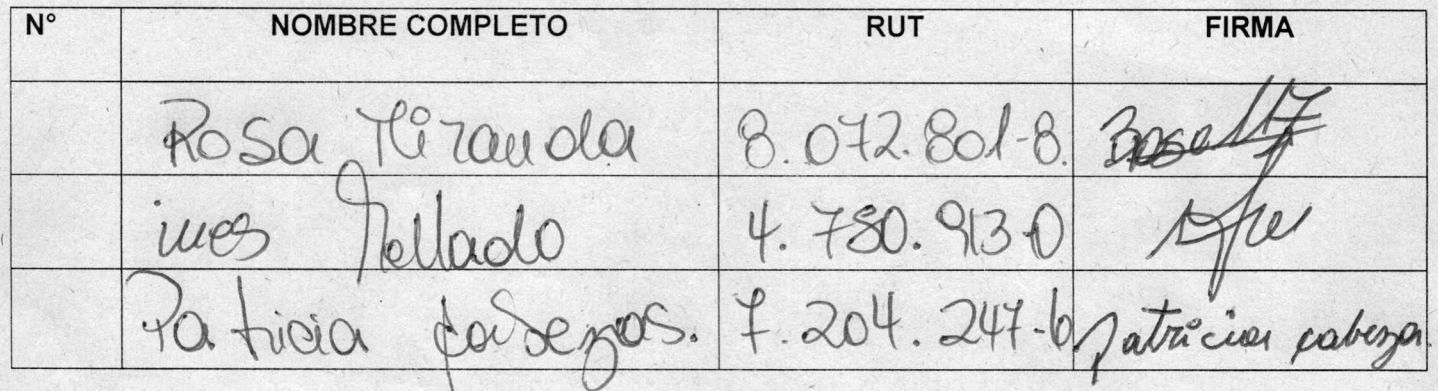 N° NOMBRE COMPLETO RUT FIRMA
Rosa Miranda 8.072.801-8.
ines Mellado 4.780.913-0
Patricia Cabezas. 7.204.247-6 Patricia cabeza.